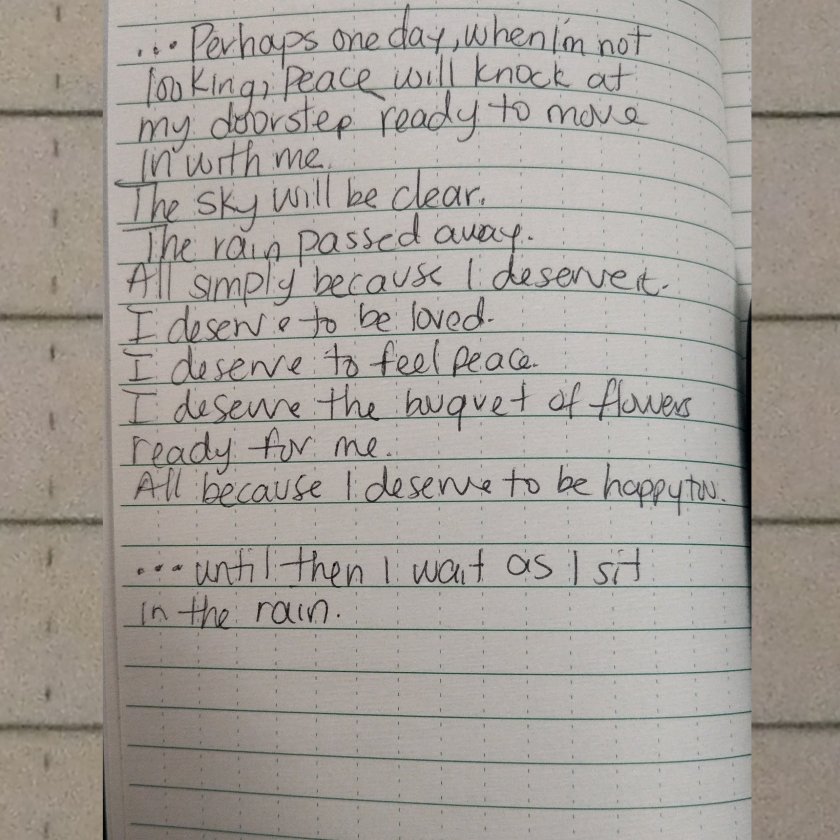 ... Perhaps one day, when I'm not
looking, peace will knock at
my doorstep ready to move
in with me.
The sky will be clear.
The rain passed away.
All simply because I deserve it.
I deserve to be loved.
I deserve to feel peace.
I deserve the buquet of flowers
ready for me.
All because I deserve to be happy too.
... until then I wait as I sit
in the rain.